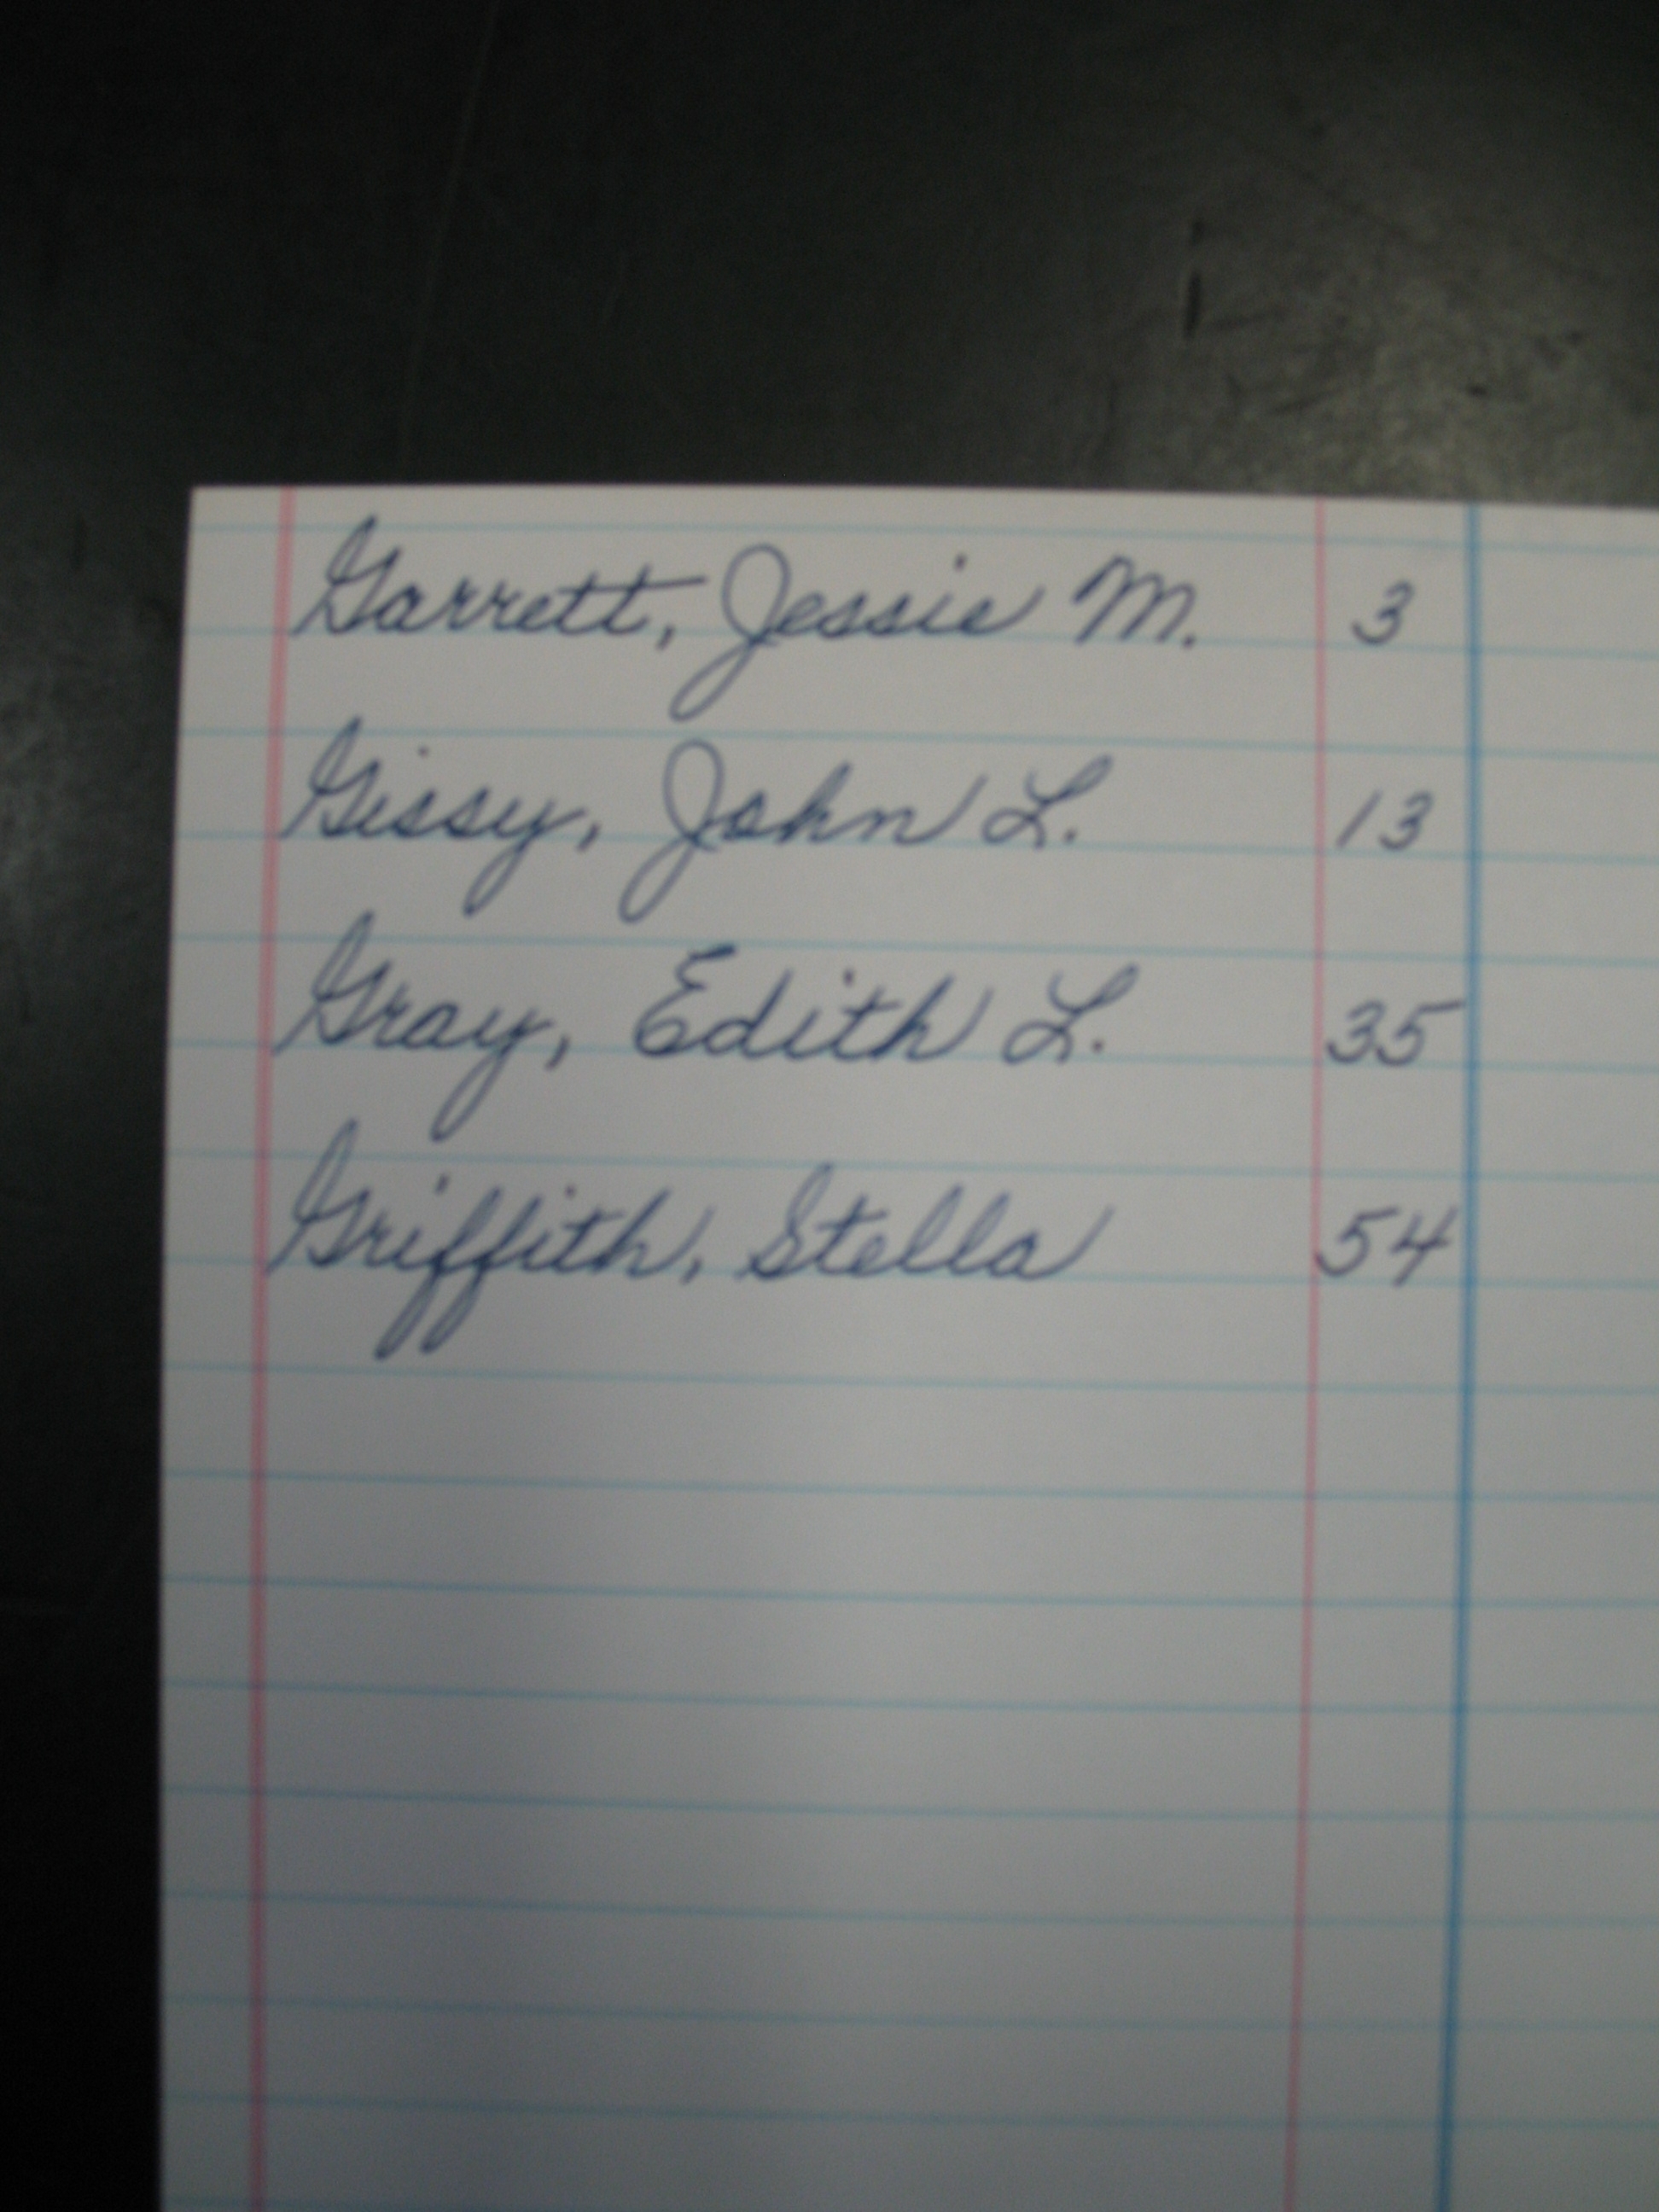 Garrett, Jessie M. 3
Gissy, John L. 13
Gray, Edith L. 35
Griffith, Stella 54